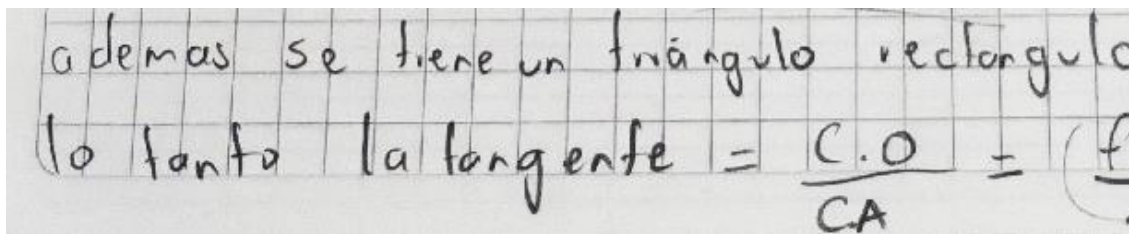 ademas se tiene un triángulo rectangulo
lo tanto la tangente = C.O / CA = (f